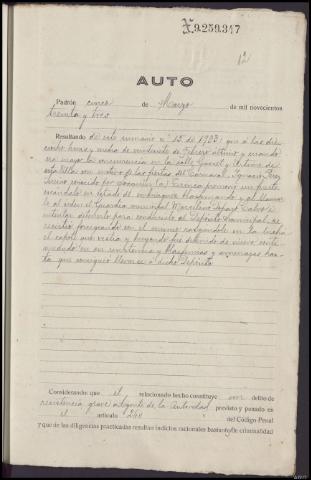 X.9.259.347
12
AUTO
Padrón cinco de Marzo de mil novecientos
treinta y tres
Resultando de este sumario nº 13 de 1933: que a las diez
ocho horas y media de veintisiete de Febrero último y cuando
era mayor la concurrencia en la calle de
esta Villa con motivo de las fiestas del Carnaval, Ignacio Pérez
conocido por promovió un fuerte
escándalo en estado de embriaguez blasfemando y al llamar
le al orden el Guardia municipal Marcelino
intentar detenerle para conducirle al Depósito Municipal, se
resistió forcejeando con el mismo rasgándole en la lucha
el capote que vestía y luego fue detenido de nuevo conti
nuando en su resistencia y blasfemias y amenazas has
ta que consiguió llevarse a dicho Depósito.
Considerando: que el relacionado hecho constituye un delito de
resistencia grave a Agente de la Autoridad previsto y penado en
el artículo 260 del Código Penal
y que de las diligencias practicadas resultan indicios racionales bastantes de criminalidad